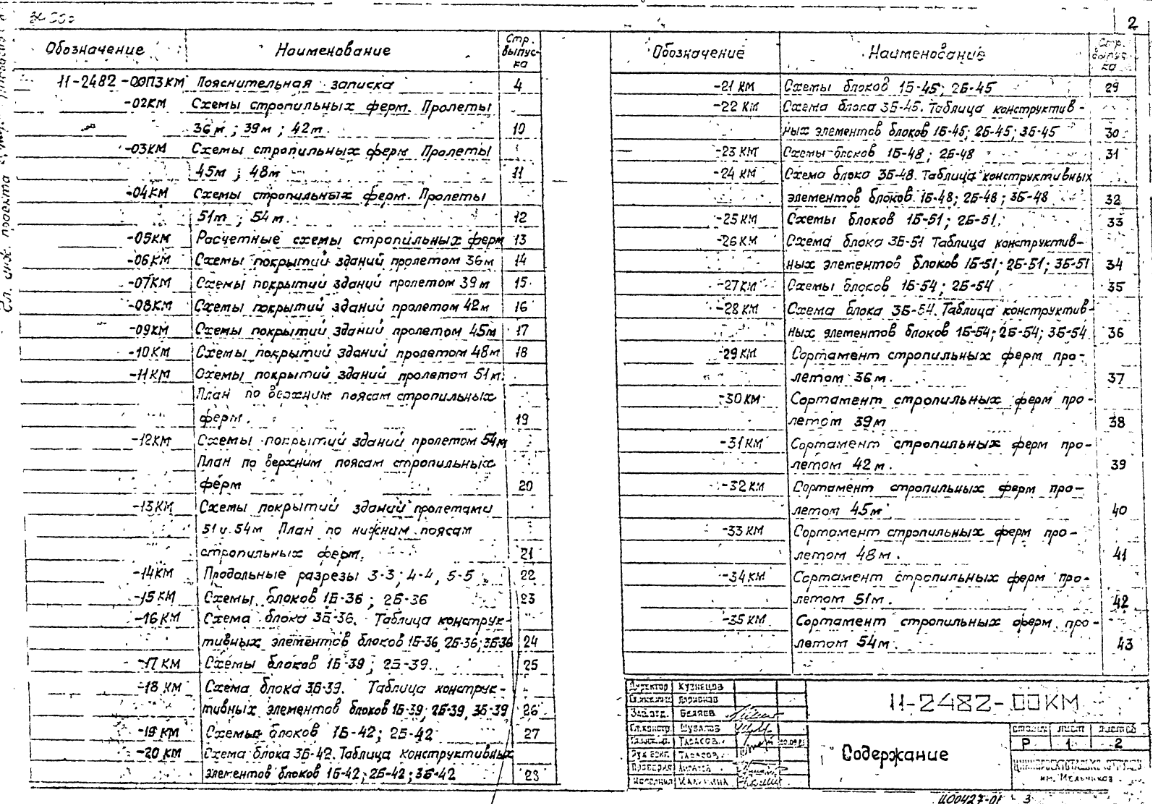 2
Обозначение Наименование Стр. выпуска
11-2482-00ПЗКМ Пояснительная записка 4
-02КМ Схемы стропильных ферм. Пролеты
36м; 39м; 42м. 10
-03КМ Схемы стропильных ферм Пролеты
45м; 48м 11
-04КМ Схемы стропильных ферм. Пролеты
51м; 54м. 12
-05КМ Расчетные схемы стропильных ферм 13
-06КМ Схемы покрытий зданий пролетом 36м 14
-07КМ Схемы покрытий зданий пролетом 39м 15
-08КМ Схемы покрытий зданий пролетом 42м 16
-09КМ Схемы покрытий зданий пролетом 45м 17
-10КМ Схемы покрытий зданий пролетом 48м 18
-11КМ Схемы покрытий зданий пролетом 51м.
План по верхним поясам стропильных
ферм. 19
-12КМ Схемы покрытий зданий пролетом 54м
План по верхним поясам стропильных
ферм 20
-13КМ Схемы покрытий зданий пролетами
51 и 54м План по нижним поясам
стропильных ферм. 21
-14КМ Продольные разрезы 3-3; 4-4, 5-5 22
-15КМ Схемы блоков 1Б-36; 2Б-36 23
-16КМ Схема блока 3Б-36. Таблица конструк-
тивных элементов блоков 1Б-36, 2Б-36; 3Б-36 24
-17КМ Схемы блоков 1Б-39; 2Б-39. 25
-18КМ Схема блока 3Б-39. Таблица конструк-
тивных элементов блоков 1Б-39; 2Б-39, 3Б-39 26
-19КМ Схемы блоков 1Б-42; 2Б-42 27
-20КМ Схема блока 3Б-42. Таблица конструктивных
элементов блоков 1Б-42; 2Б-42; 3Б-42 28
Обозначение Наименование Стр. выпуска
-21КМ Схемы блоков 1Б-45; 2Б-45 29
-22КМ Схема блока 3Б-45. Таблица конструктив-
ных элементов блоков 1Б-45; 2Б-45; 3Б-45 30
-23КМ Схемы блоков 1Б-48; 2Б-48 31
-24КМ Схема блока 3Б-48. Таблица конструктивных
элементов блоков 1Б-48; 2Б-48; 3Б-48 32
-25КМ Схемы блоков 1Б-51; 2Б-51. 33
-26КМ Схема блока 3Б-51 Таблица конструктив-
ных элементов блоков 1Б-51; 2Б-51; 3Б-51 34
-27КМ Схемы блоков 1Б-54; 2Б-54 35
-28КМ Схема блока 3Б-54. Таблица конструктив-
ных элементов блоков 1Б-54; 2Б-54; 3Б-54 36
-29КМ Сортамент стропильных ферм про-
летом 36м. 37
-30КМ Сортамент стропильных ферм про-
летом 39м 38
-31КМ Сортамент стропильных ферм про-
летом 42м. 39
-32КМ Сортамент стропильных ферм про-
летом 45м 40
-33КМ Сортамент стропильных ферм про-
летом 48м. 41
-34КМ Сортамент стропильных ферм про-
летом 51м. 42
-35КМ Сортамент стропильных ферм про-
летом 54м. 43
Директор Кузнецов
Зав.отд. Беляев
Гл.констр. Шувалов
Тарасов
Тарасов
11-2482-00КМ
Содержание
стадия лист листов
Р 1 2
им. Мельникова
Ц00427-01 3